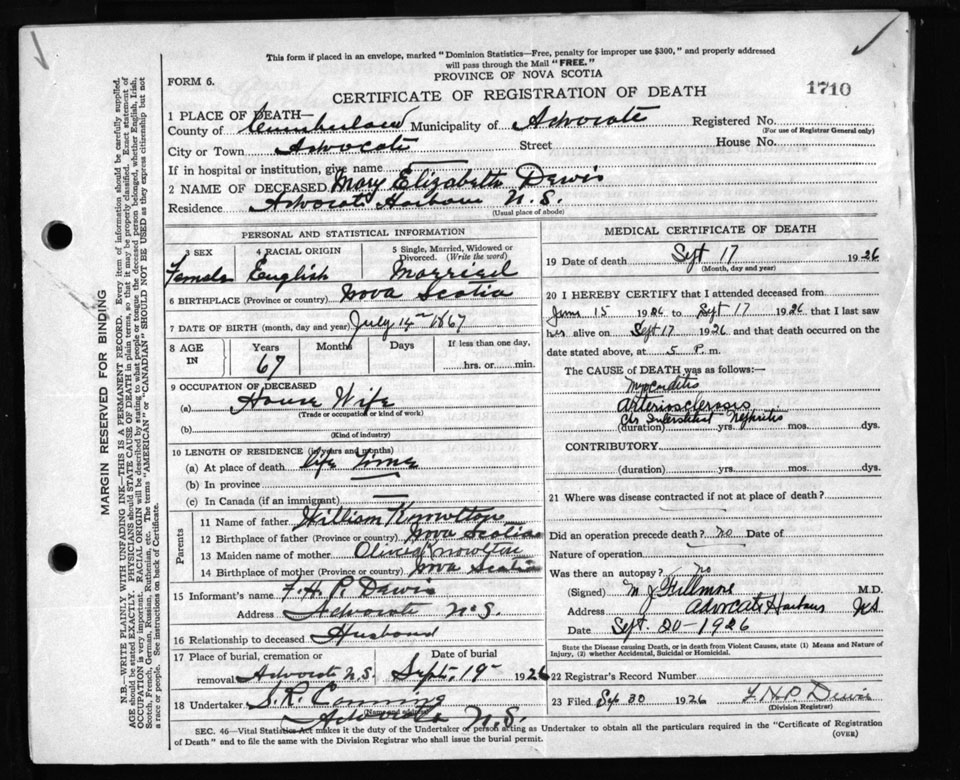 This form if placed in an envelope, marked "Dominion Statistics—Free, penalty for improper use $300," and properly addressed
will pass through the Mail "FREE."
PROVINCE OF NOVA SCOTIA
FORM 6.
CERTIFICATE OF REGISTRATION OF DEATH
1710
1 PLACE OF DEATH—
County of Cumberland Municipality of Advocate Registered No.
(For use of Registrar General only)
City or Town Advocate Street House No.
If in hospital or institution, give name
2 NAME OF DECEASED Mary Elizabeth Dewis
Residence Advocate Harbour N.S.
(Usual place of abode)
PERSONAL AND STATISTICAL INFORMATION
3 SEX 4 RACIAL ORIGIN 5 Single, Married, Widowed or Divorced. (Write the word)
Female English Married
6 BIRTHPLACE (Province or country) Nova Scotia
7 DATE OF BIRTH (month, day and year) July 1867
8 AGE IN Years Months Days If less than one day,
67 hrs. or min.
9 OCCUPATION OF DECEASED
(a) House Wife
(Trade or occupation or kind of work)
(b)
(Kind of industry)
10 LENGTH OF RESIDENCE (in years and months)
(a) At place of death life time
(b) In province
(c) In Canada (if an immigrant)
Parents
11 Name of father William
12 Birthplace of father (Province or country) Nova Scotia
13 Maiden name of mother
14 Birthplace of mother (Province or country) Nova Scotia
15 Informant's name F. H. P. Dewis
Address Advocate N.S.
16 Relationship to deceased Husband
17 Place of burial, cremation or Date of burial
removal Advocate N.S. Sept. 19 1926
18 Undertaker S. R.
(Name and address)
Advocate N.S.
MEDICAL CERTIFICATE OF DEATH
19 Date of death Sept 17 1926
(Month, day and year)
20 I HEREBY CERTIFY that I attended deceased from
June 15 1926 to Sept 17 1926 that I last saw
her alive on Sept 17 1926 and that death occurred on the
date stated above, at 5 P. m.
The CAUSE OF DEATH was as follows:
Myocarditis
Arteriosclerosis
Chr Interstitial Nephritis
(duration) yrs. mos. dys.
CONTRIBUTORY
(duration) yrs. mos. dys.
21 Where was disease contracted if not at place of death?
Did an operation precede death? no Date of
Nature of operation
Was there an autopsy? no
(Signed) M J Fillmore M.D.
Address Advocate Harbour N.S.
Date Sept. 20-1926
State the Disease causing Death, or in death from Violent Causes, state (1) Means and Nature of
Injury, (2) whether Accidental, Suicidal or Homicidal.
22 Registrar's Record Number
23 Filed Sep 30 1926 F.H.P. Dewis
(Division Registrar)
SEC. 46—Vital Statistics Act makes it the duty of the Undertaker or person acting as Undertaker to obtain all the particulars required in the "Certificate of Registration
of Death" and to file the same with the Division Registrar who shall issue the burial permit.
(OVER)
MARGIN RESERVED FOR BINDING
N.B.—WRITE PLAINLY WITH UNFADING INK—THIS IS A PERMANENT RECORD. Every item of information should be carefully supplied.
AGE should be stated EXACTLY. PHYSICIANS should STATE CAUSE OF DEATH in plain terms, so that it may be properly classified. Exact statement of
OCCUPATION is very important. RACIAL ORIGIN will be described by stating to what people or tongue the deceased person belonged, whether English, Irish,
Scotch, French, German, Russian, Ruthenian, etc. The terms "AMERICAN" or "CANADIAN" SHOULD NOT BE USED as they express citizenship but not
a race or people. See instructions on back of Certificate.